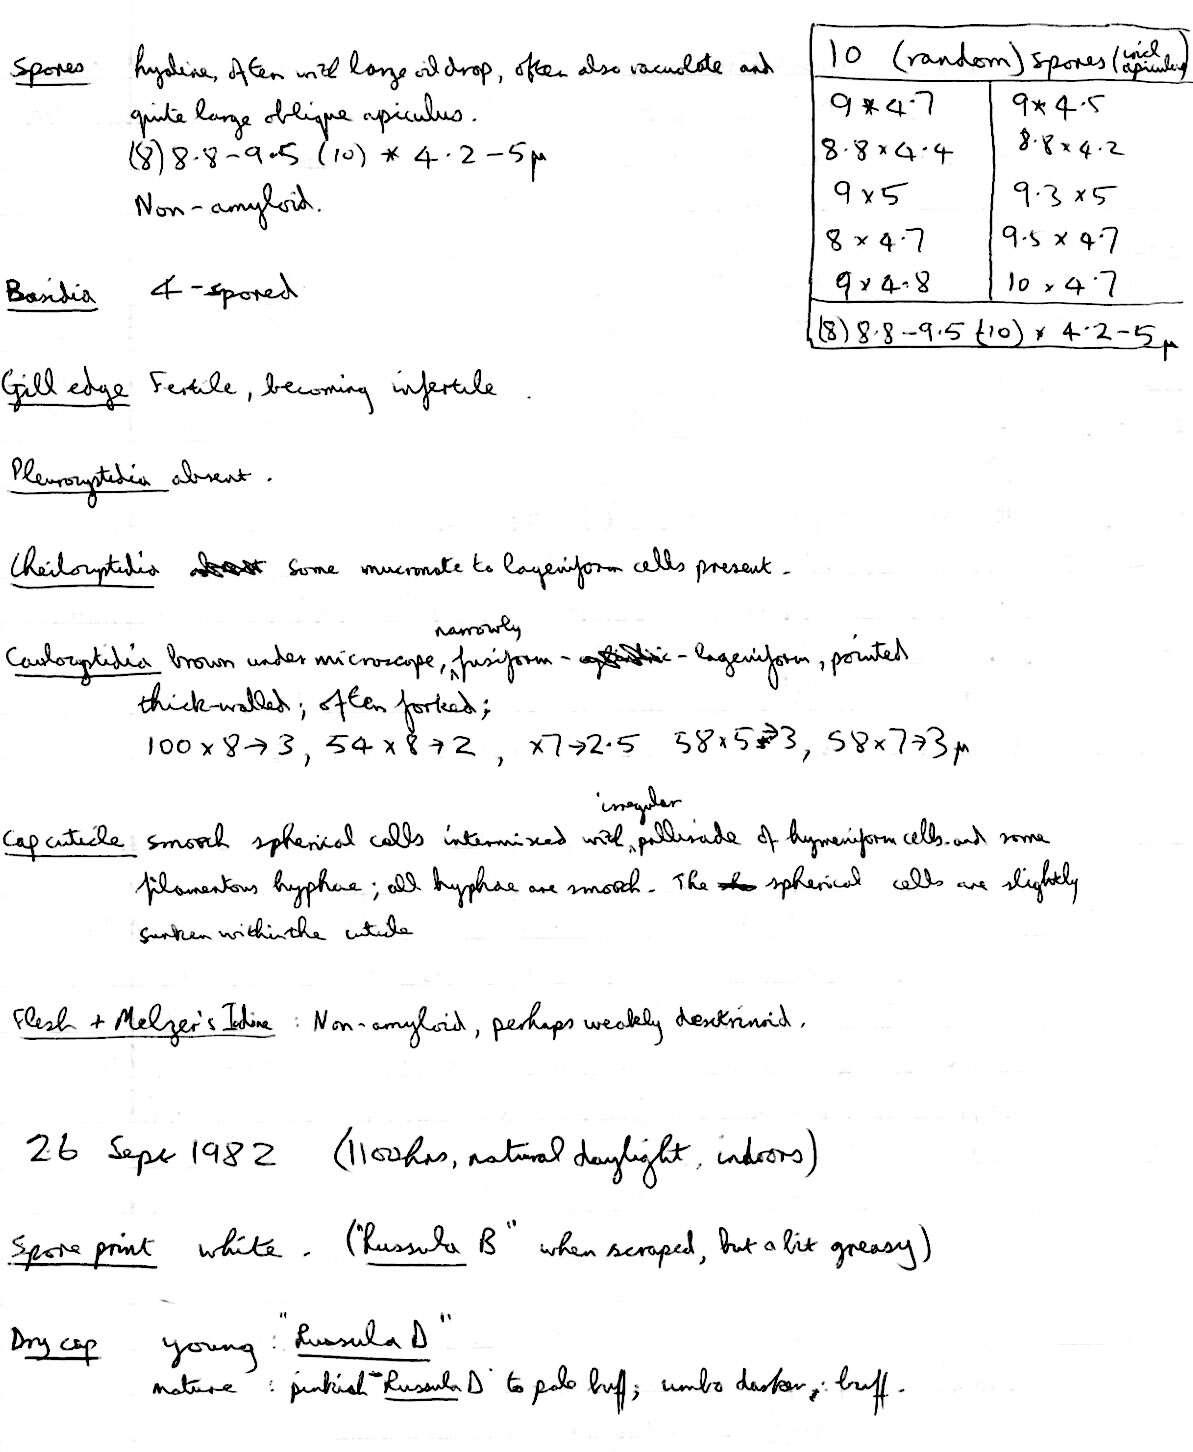 Spores hyaline, often with large oil drop, often also vacuolate and
quite large oblique apiculus.
(8) 8.8-9.5 (10) * 4.2-5µ
Non-amyloid.
10 (random) spores (incl apiculus)
9*4.7 9*4.5
8.8×4.4 8.8×4.2
9×5 9.3×5
8×4.7 9.5×4.7
9×4.8 10×4.7
(8) 8.8-9.5 (10) * 4.2-5µ
Basidia 4-spored
Gill edge Fertile, becoming infertile.
Pleurocystidia absent.
Cheilocystidia some mucronate to lageniform cells present.
Caulocystidia brown under microscope, narrowly fusiform - lageniform, pointed
thick-walled; often forked;
100×8→3, 54×8→2, ×7→2.5 58×5→3, 58×7→3µ
Cap cuticle smooth spherical cells intermixed with irregular pallisade of hymeniform cells and some
filamentous hyphae; all hyphae are smooth. The spherical cells are slightly
sunken within the cuticle
Flesh + Melzer's Iodine: Non-amyloid, perhaps weakly dextrinoid.
26 Sept 1982 (1100hrs, natural daylight, indoors)
Spore print white. ("Russula B" when scraped, but a bit greasy)
Dry cap young: "Russula D"
mature: pinkish-Russula D to pale buff; umbo darker: buff.